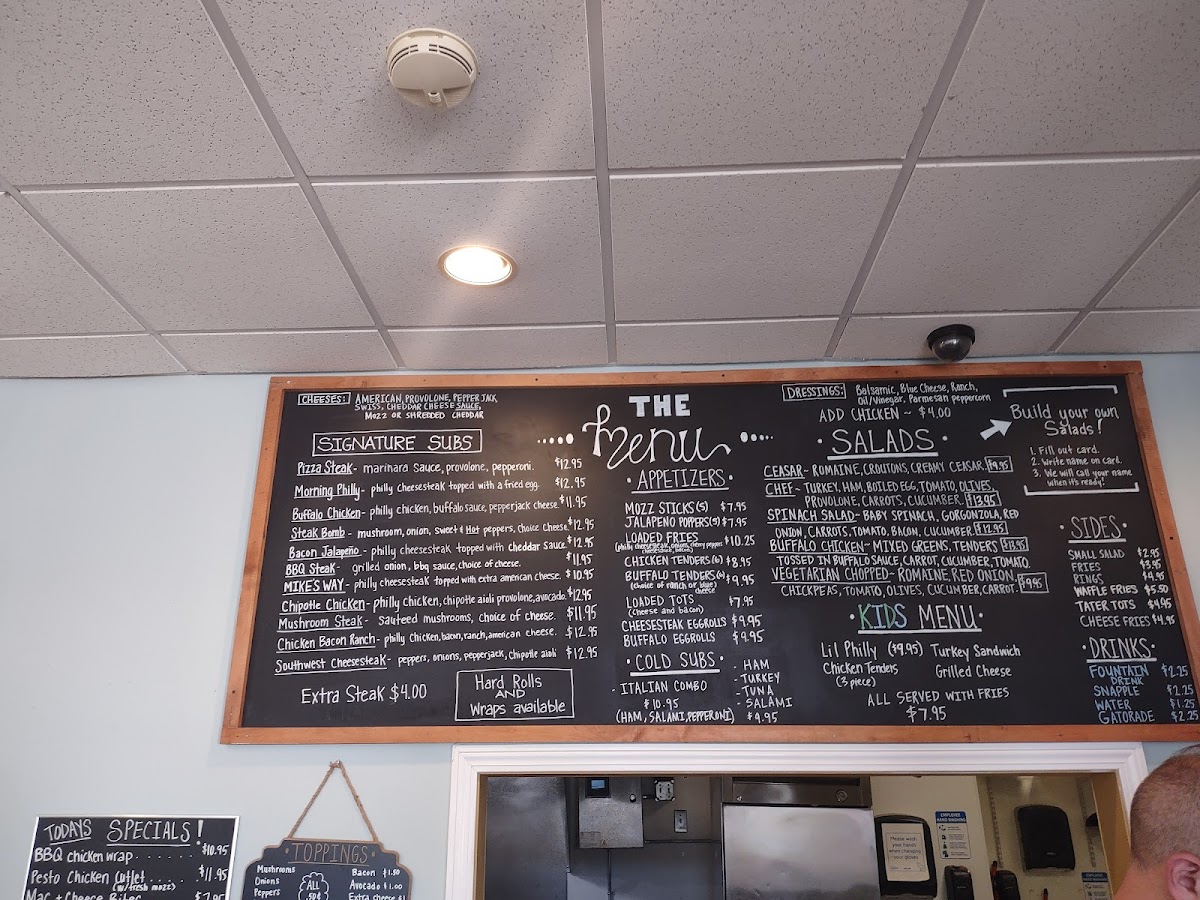 CHEESES: AMERICAN, PROVOLONE, PEPPER JACK
SWISS, CHEDDAR CHEESE SAUCE,
MOZZ OR SHREDDED CHEDDAR
SIGNATURE SUBS
Pizza Steak - marinara sauce, provolone, pepperoni. $12.95
Morning Philly - philly cheesesteak topped with a fried egg. $12.95
Buffalo Chicken - philly chicken, buffalo sauce, pepperjack cheese. $11.95
Steak Bomb - mushroom, onion, sweet & Hot peppers, choice Cheese. $12.95
Bacon Jalapeño - philly cheesesteak topped with cheddar sauce. $12.95
BBQ Steak - grilled onion, bbq sauce, choice of cheese. $11.95
MIKE'S WAY - philly cheesesteak topped with extra american cheese. $10.95
Chipotle Chicken - philly chicken, chipotle aioli provolone, avocado. $12.95
Mushroom Steak - Sauteed mushrooms, choice of cheese. $11.95
Chicken Bacon Ranch - philly chicken, bacon, ranch, american cheese. $12.95
Southwest Cheesesteak - peppers, onions, pepperjack, chipotle aioli $12.95
Extra Steak $4.00
Hard Rolls
AND
Wraps available
THE
Menu
APPETIZERS
MOZZ STICKS (5) $7.95
JALAPENO POPPERS (5) $7.95
LOADED FRIES $10.25
CHICKEN TENDERS (6) $8.95
BUFFALO TENDERS (6) $9.95
(choice of ranch or blue cheese)
LOADED TOTS $7.95
(cheese and bacon)
CHEESESTEAK EGGROLLS $9.95
BUFFALO EGGROLLS $9.95
COLD SUBS
- ITALIAN COMBO
$10.95
(HAM, SALAMI, PEPPERONI)
- HAM
- TURKEY
- TUNA
- SALAMI
$9.95
DRESSINGS: Balsamic, Blue Cheese, Ranch,
Oil/Vinegar, Parmesan peppercorn
ADD CHICKEN ~ $4.00
SALADS
CEASAR ~ ROMAINE, CROUTONS, CREAMY CEASAR. $9.95
CHEF ~ TURKEY, HAM, BOILED EGG, TOMATO, OLIVES,
PROVOLONE, CARROTS, CUCUMBER. $13.95
SPINACH SALAD ~ BABY SPINACH, GORGONZOLA, RED
ONION, CARROTS, TOMATO, BACON, CUCUMBER. $12.95
BUFFALO CHICKEN ~ MIXED GREENS, TENDERS $13.95
TOSSED IN BUFFALO SAUCE, CARROT, CUCUMBER, TOMATO.
VEGETARIAN CHOPPED ~ ROMAINE, RED ONION, $9.95
CHICKPEAS, TOMATO, OLIVES, CUCUMBER, CARROT.
KIDS MENU
Lil Philly ($9.95) Turkey Sandwich
Chicken Tenders Grilled Cheese
(3 piece)
ALL SERVED WITH FRIES
$7.95
Build your own
Salads!
1. Fill out card.
2. Write name on card.
3. We will call your name
when it's ready!
SIDES
SMALL SALAD $2.95
FRIES $3.95
RINGS $4.95
WAFFLE FRIES $5.50
TATER TOTS $4.95
CHEESE FRIES $4.95
DRINKS
FOUNTAIN DRINK $2.25
SNAPPLE $2.25
WATER $1.25
GATORADE $2.25
TODAYS SPECIALS!
BBQ chicken wrap ..... $10.95
Pesto Chicken Cutlet .... $11.95
(w/fresh mozz)
Mac + Cheese Bites $7.95
TOPPINGS
Mushrooms
Onions
Peppers
ALL
.50¢
Bacon $1.50
Avocado $1.00
Extra cheese
Please wash
your hands
when changing
your gloves
EMPLOYEE
HAND WASHING